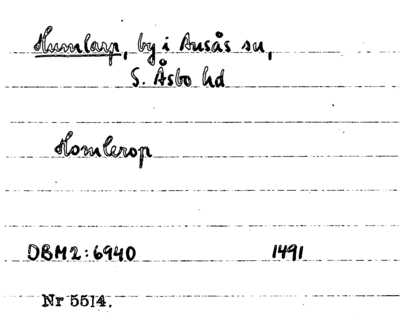 Humlarp, by i Ausås sn,
S. Åsbo hd
Homlerop
DBM2:6940 1491
Nr 5514.